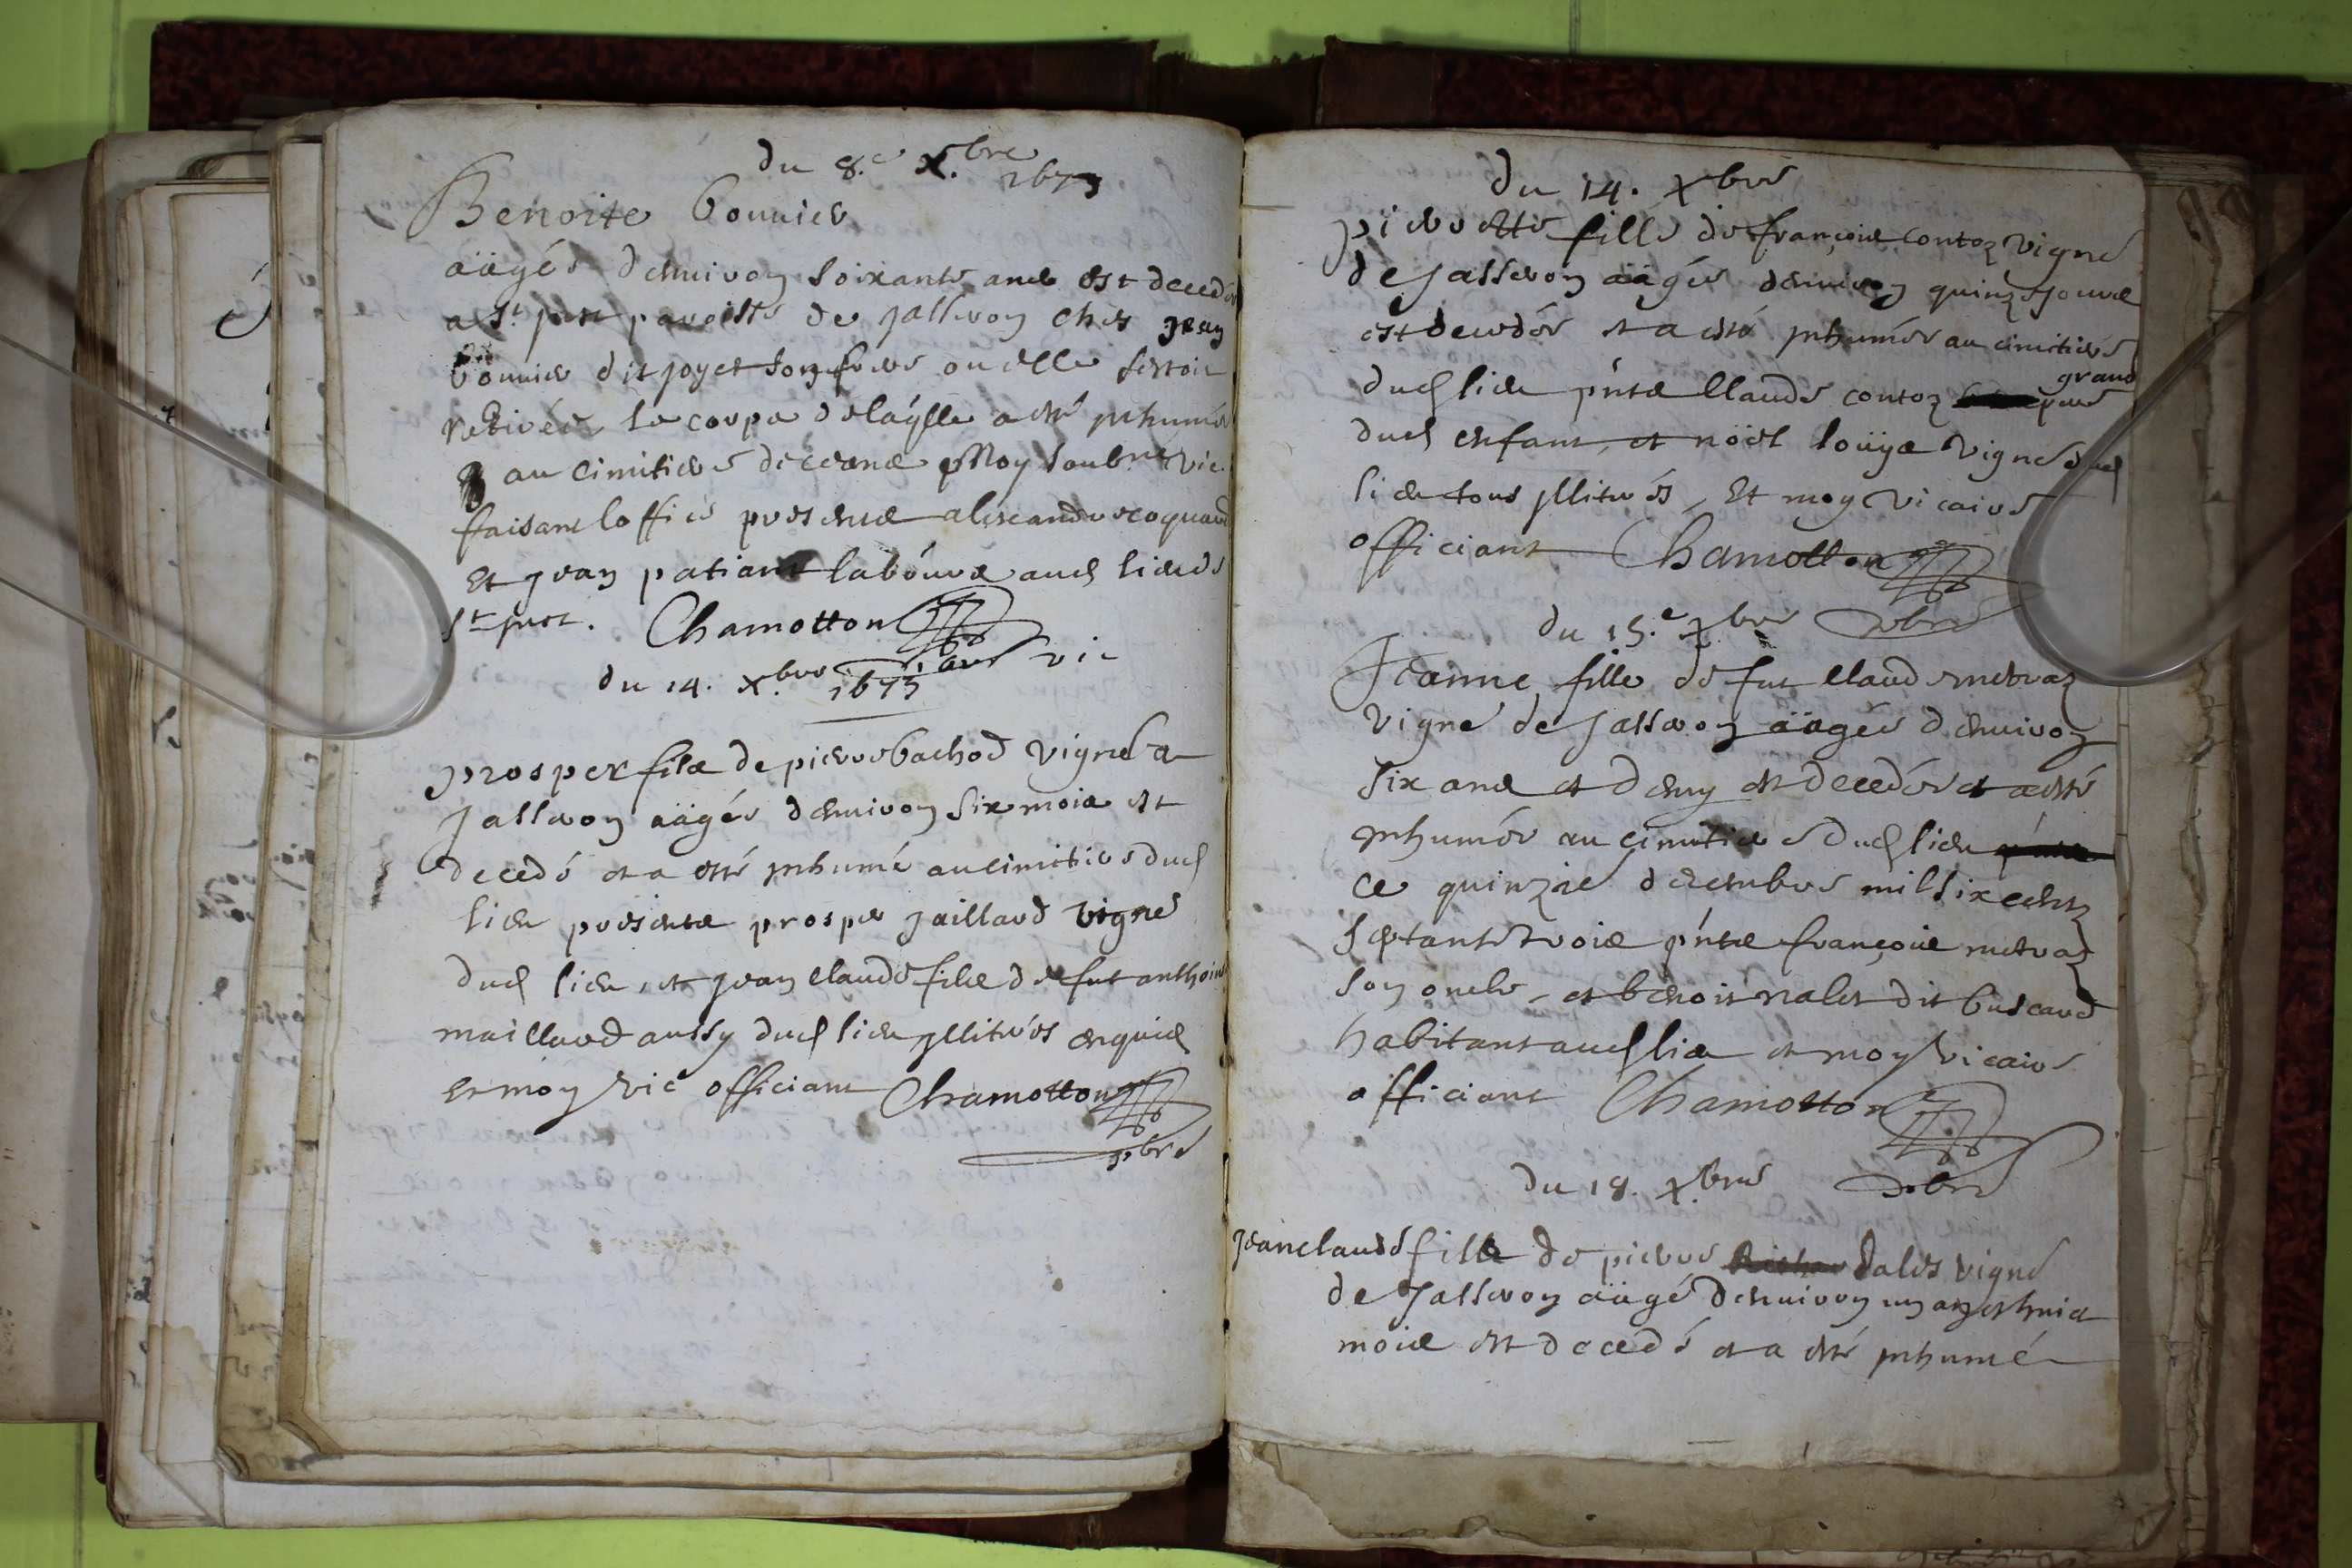 du 8.e X.bre 1673
Benoite Bonnier
aâgée denuiron soixante ans est decedée
a St. just paroisse de Jasseron ches Jean
bonnier dit joyet son frere ou elle sestoit
retirée le corps delaqlle a esté jnhumé
au cimitiere de ceans p Moy soubne vic
faisant loffice presents alexandre
Et jean patiant labours aud lieu de
St just. Chamotton
vic
du 14. X.bre 1673
prosper fils de pierre bachod vigne a
Jasseron aâgés denuiron six mois est
decedé et a esté jnhumé au cimitiere dud
lieu presents prosper jaillard vigne
dud lieu, et jean claude fils de fut anthoine
maillard aussy dud lieu jllitrés enquis
Et moy vic officiant Chamotton
pbre
du 14. Xbre
pierrette fille de françois contoz vigne
de Jasseron aâgée denuiron quinze jours
est decedée et a esté jnhumée au cimitiere
dud lieu pnts Claude contoz grand pere
dud enfant, et noël loüys vigne dud
lieu tous jllitrés, Et moy vicaire
officiant Chamotton
pbre
du 15.e Xbre
Jeanne fille de fut Claude metraz
vigne de Jasseron aâgée denuiron
six ans et demy est decedée et a esté
jnhumée au cimitiere dud lieu
ce quinzie decembre mil six centz
septante trois pnts françois metraz
son oncle, et benoit nalet dit buscaud
habitant aud lieu et moy vicaire
officiant Chamotton
pbre
du 18. X.bre
jeanclaude fils de pierre dalés vigne
de Jasseron aâgé denuiron un an et huict
mois est decedé et a esté jnhumé